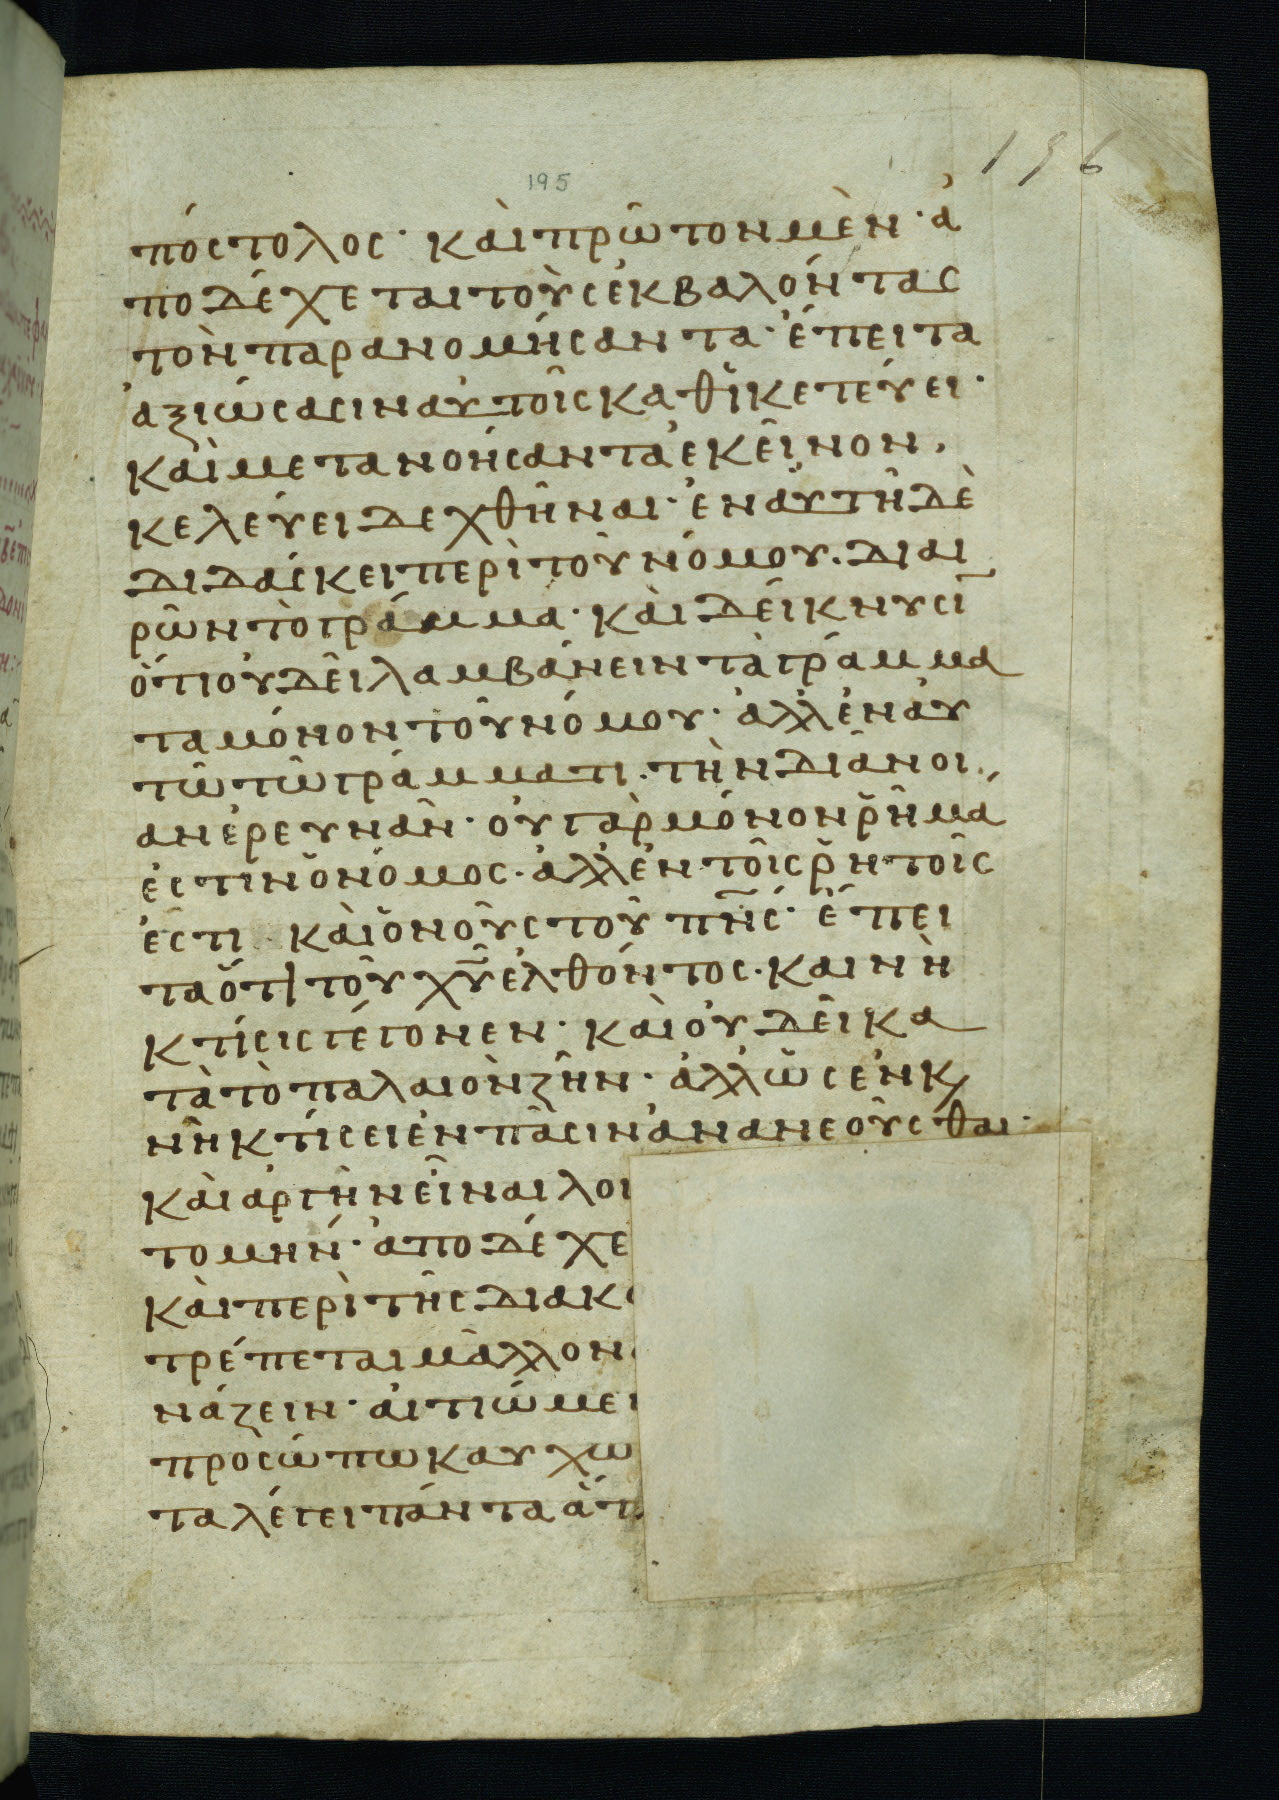 196
195
πόστολος· καὶ πρῶτον μὲν· ἀ
ποδέχεται τοὺς ἐκβαλόντας
τὸν παρανομήσαντα· ἔπειτα
ἀξιώσασιν αὐτοῖς καθικετεύει·
καὶ μετανοήσαντα ἐκεῖνον,
κελεύει δεχθῆναι· ἐν αὐτῇ δὲ
διδάσκει περὶ τοῦ νόμου. διαι
ρῶν τὸ γράμμα· καὶ δείκνυσῑ
ὅτι οὐ δεῖ λαμβάνειν τὰ γράμμα
τα μόνον τοῦ νόμου· ἀλλ' ἐν αὐ
τῶ τῶ γράμματι. τὴν διάνοι
αν ἐρευνᾶν· οὐ γὰρ μόνον ῥῆμά
ἐστιν ὁ νόμος. ἀλλ' ἐν τοῖς ῥητοῖς
ἐστι καὶ ὁ νοῦς τοῦ πν̅ς· ἔπει
τα ὅτι τοῦ χυ̅ ἐλθόντος. καινὴ
κτίσις γέγονεν· καὶ οὐ δεῖ κα
τὰ τὸ παλαιὸν ζῆν. ἀλλ' ὡς ἐν κ
νῆ κτίσει ἐν πᾶσιν ἀνανεοῦσθαι·
καὶ ἀργὴν εἶναι λοι
τομήν· ἀποδέχε
καὶ περὶ τῆς διακο
τρέπεται μᾶλλον
νάζειν· αἰτιώμεν
προσώπω καυχω
τα λέγει πάντα ἀπ